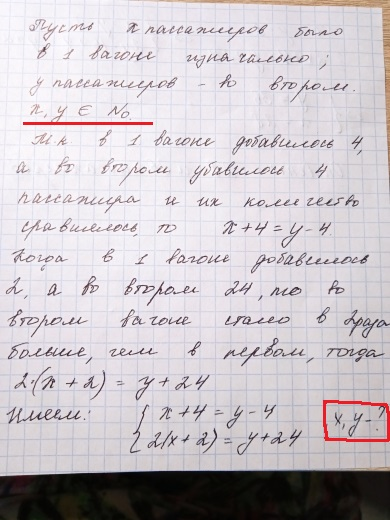 Пусть x пассажиров было
в 1 вагоне изначально;
y пассажиров - во втором.
x, y ∈ N₀
Т.к в 1 вагоне добавилось 4,
а во втором убавилось 4
пассажира и их количество
сравнялось, то x+4=y-4
Когда в 1 вагоне добавилось
2, а во втором 24, то во
втором вагоне стало в 2 раза
больше, чем в первом, тогда
2·(x+2) = y+24
Имеем: { x+4=y-4
2(x+2)=y+24
x, y - ?